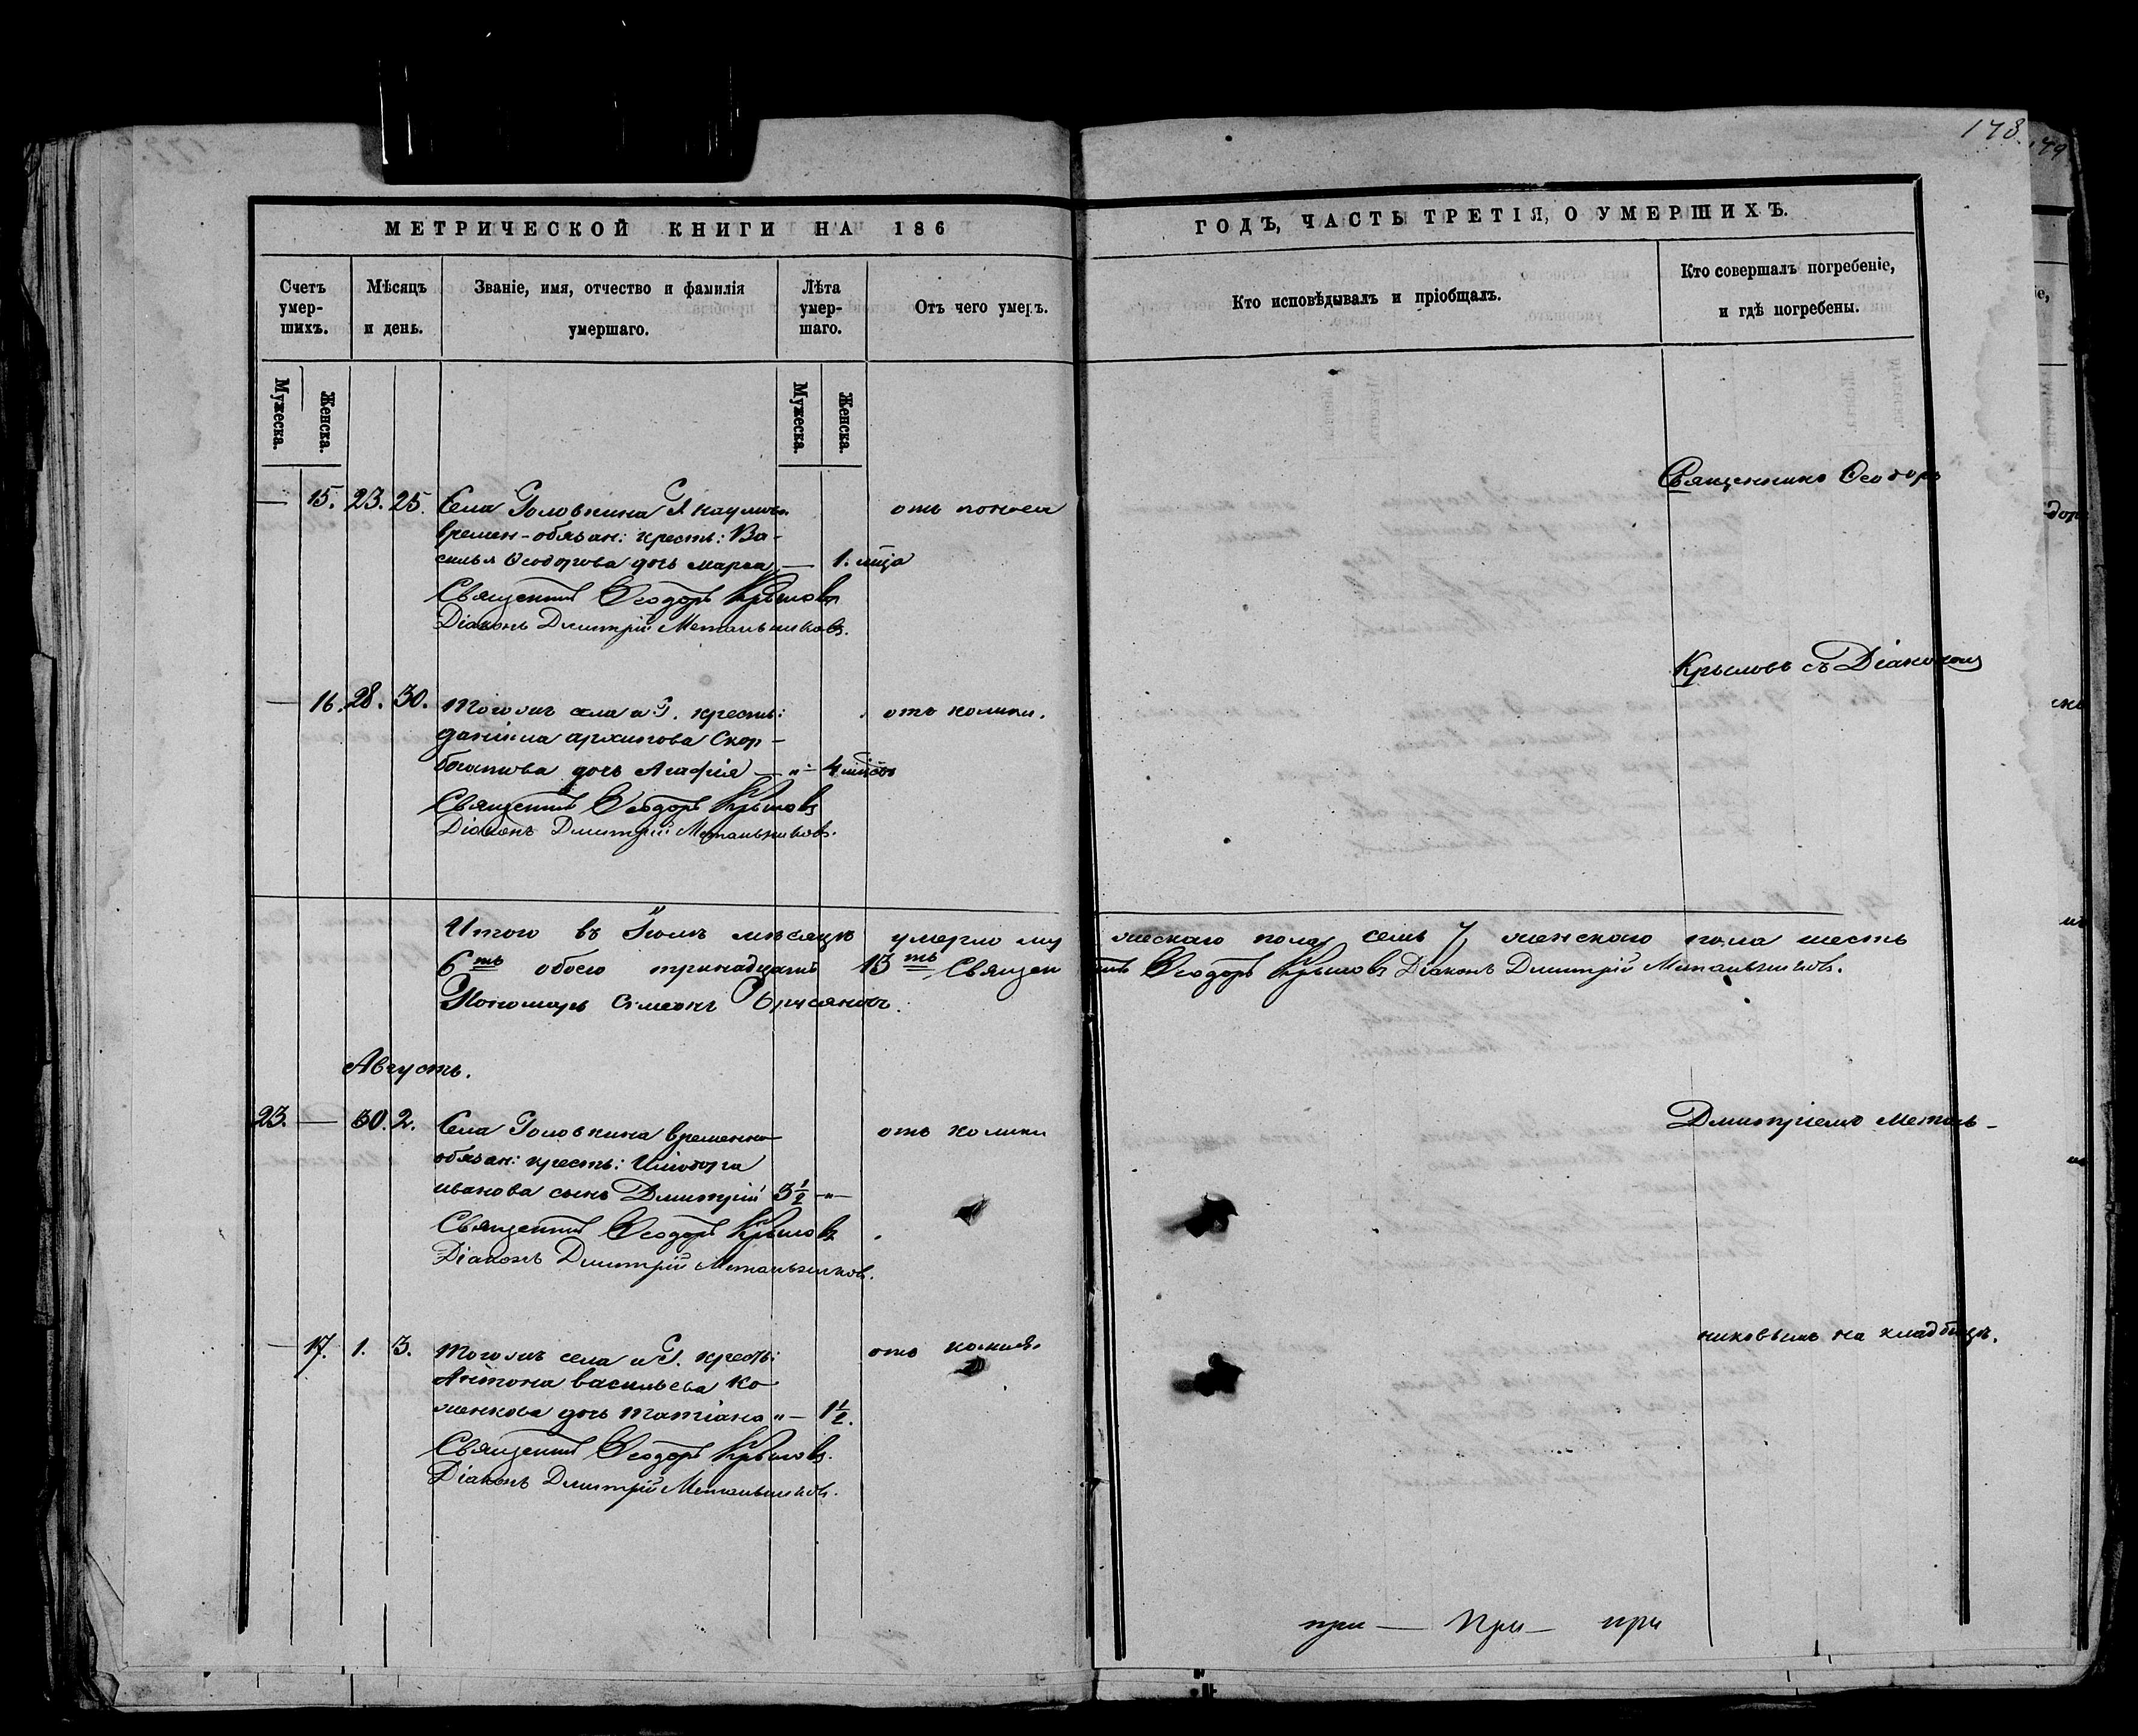 178.
179
МЕТРИЧЕСКОЙ КНИГИ НА 186
ГОДЪ, ЧАСТЬ ТРЕТІЯ, О УМЕРШИХЪ.
Счетъ умер-шихъ.
Мѣсяцъ и день.
Званіе, имя, отчество и фамилія умершаго.
Лѣта умер-шаго.
Отъ чего умеръ.
Кто исповѣдывалъ и пріобщалъ.
Кто совершалъ погребеніе, и гдѣ погребены.
Мужеска.
Женска.
Мужеска.
Женска.
— 15. 23. 25. Села Головкина
времен-обязан: кресть: Ва-
силья Ѳеодорова дочь Марѳа — 1. мца
Священник Ѳеодоръ Крыловъ
Діаконъ Дмитрій Метальниковъ.
Священникъ Ѳеодоръ
— 16. 28. 30. Тогожъ села и Г. кресть: отъ колики.
Даніила Архипова Скор-
богатова дочь Агафія — " — 4
Священник Ѳеодоръ Крыловъ
Діаконъ Дмитрій Метальниковъ.
Крыловъ съ Діакономъ
Итого въ Іюлѣ мѣсяцѣ умерло мужескаго пола семь 7, женскаго пола шесть
6ть обоего тринадцать 13ть Священник Ѳеодоръ Крыловъ Діаконъ Дмитрій Метальниковъ.
Пономарь Симеонъ
Августъ.
23. — 30. 2. Села Головкина временно- отъ колики
обязан: кресть:
Иванова сынъ Дмитрій 3½ — " —
Священник Ѳеодоръ Крыловъ
Діаконъ Дмитрій Метальниковъ.
Дмитріемъ Металь-
— 17. 1. 3. Тогожъ села и Г. кресть: отъ колики.
Антона Васильева Ко-
женкова дочь Татіана " — 1½.
Священник Ѳеодоръ Крыловъ.
Діаконъ Дмитрій Метальниковъ.
никовымъ на кладбищѣ.
при — При — при